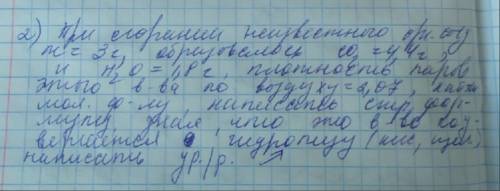 2) При сгорании неизвестного орг. соед
m = 3г, образовалось CO2 = 4,4г,
и H2O = 1,8г, плотность паров
этого в-ва по воздуху = 2,07, найти
мол. ф-лу, написать стр. фор-
мулу зная, что это в-во под-
вергается гидролизу (кис, щел.)
написать ур. р.